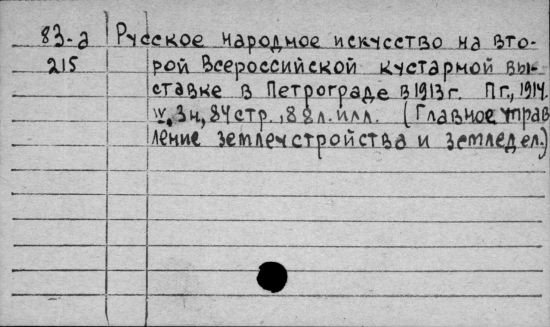 83-а Русское народное искусство на вто-
215 рой Всероссийской кустарной вы-
ставке в Петрограде в 1913 г. Пг., 1914.
IV, 3 н, 84 стр., 88 л. илл. (Главное управ
ление землеустройства и земледел.)